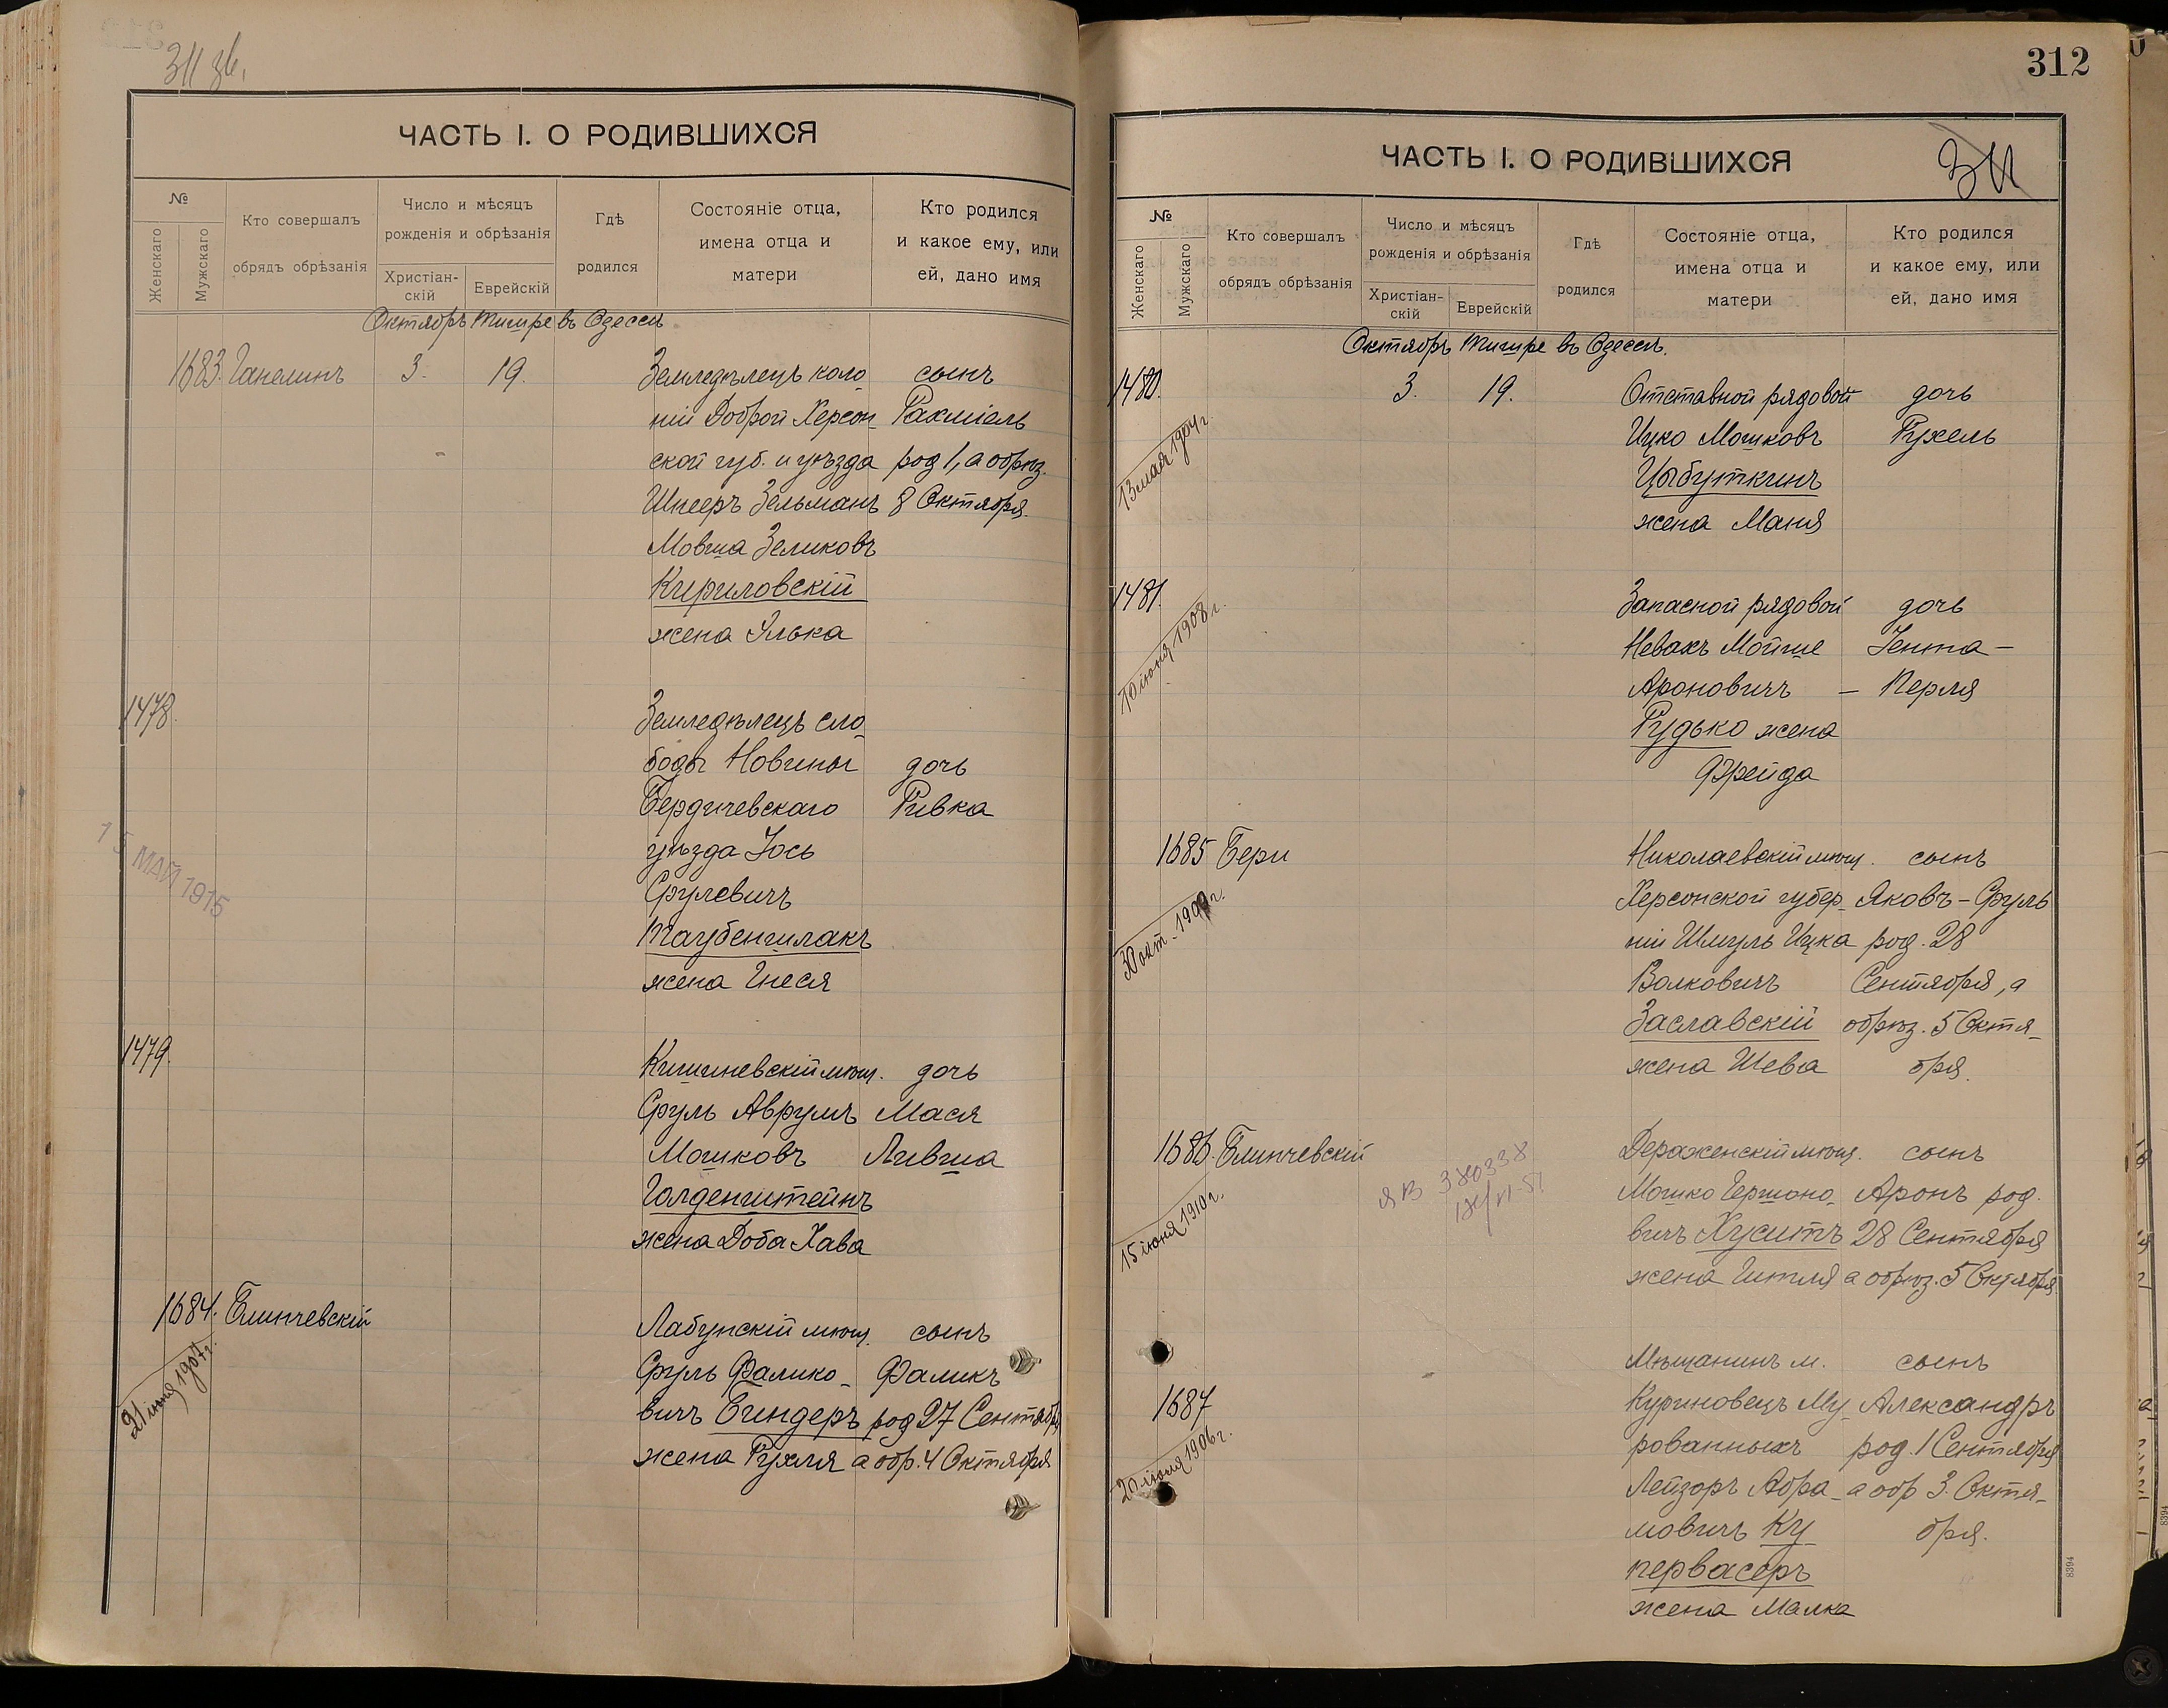 311 зв.
ЧАСТЬ I. О РОДИВШИХСЯ
№
Женскаго
Мужскаго
Кто совершалъ
обрядъ обрѣзанія
Число и мѣсяцъ
рожденія и обрѣзанія
Христіан-
скій
Еврейскій
Гдѣ
родился
Состояніе отца,
имена отца и
матери
Кто родился
и какое ему, или
ей, дано имя
Октябрь Тишре въ Одессѣ
1683. Ганелинъ 3. 19. Земледѣлецъ коло сынъ
ніи Доброй Херсон Рахміель
ской губ. и уѣзда род 1, а обрѣз.
Шнееръ Зельманъ 8 Октября.
Мовша Зеликовъ
Кириловскій
жена Элька
1478. Земледѣлецъ сло
боды Новины дочь
Бердичевскаго Ривка
уѣзда Іось
Срулевичъ
Таубеншлакъ
жена Гнеся
15 МАЙ 1915
1479. Кишиневскій мѣщ. дочь
Сруль Аврумъ Мася
Мошковъ Лившa
Голденштейнъ
жена Доба Хава
1684. Блинчевскій Лабунскій мѣщ. сынъ
Сруль Фалико- Фаликъ
вичъ Биндеръ род 27 Сентября
жена Рухля а обр. 4 Октября
21 1907 г.
312
ЧАСТЬ I. О РОДИВШИХСЯ
311
№
Женскаго
Мужскаго
Кто совершалъ
обрядъ обрѣзанія
Число и мѣсяцъ
рожденія и обрѣзанія
Христіан-
скій
Еврейскій
Гдѣ
родился
Состояніе отца,
имена отца и
матери
Кто родился
и какое ему, или
ей, дано имя
Октябрь Тишре въ Одессѣ.
1480. 3. 19. Отставной рядовой дочь
Ицко Мошковъ Рухель
Цыбуткинъ
жена Маня
13 мая 1904 г.
1481. Запасной рядовой дочь
Невахъ Мойше Іента –
Ароновичъ – Перля
Рудько жена
Фрейда
10 іюня 1908 г.
1685 Бери Николаевскій мѣщ. сынъ
Херсонской губер Яковъ – Сруль
ніи Шмуль Ицка род. 28
Волковичъ Сентября, а
Заславскій обрѣз. 5 Октя
жена Шева бря.
30 окт. 1909 г.
1686. Блинчевскій Дераженскій мѣщ. сынъ
Мошко Гершоно Аронъ род.
вичъ Хуситъ 28 Сентября
жена Гитля а обрѣз. 5 Октября
ЯВ 380338
15 іюня 1910 г.
Мѣщанинъ м. сынъ
1687 Куриновецъ Му Александръ
рованныхъ род. 1 Сентября
Лейзоръ Абра а обр 3. Октя-
мовичъ Ку бря.
первасеръ
жена Малка
20 іюня 1906 г.
8394
8394